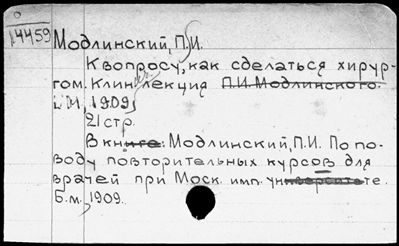 14459
Модлинский, П.И.
К вопросу, как сделаться хирур-
гом. Клин. лекция П.И. Модлинского.
М., 1909,
21 стр.
В книге: Модлинский, П.И. По по-
воду повторительных курсов для
врачей при Моск. имп. университете.
Б.м., 1909.